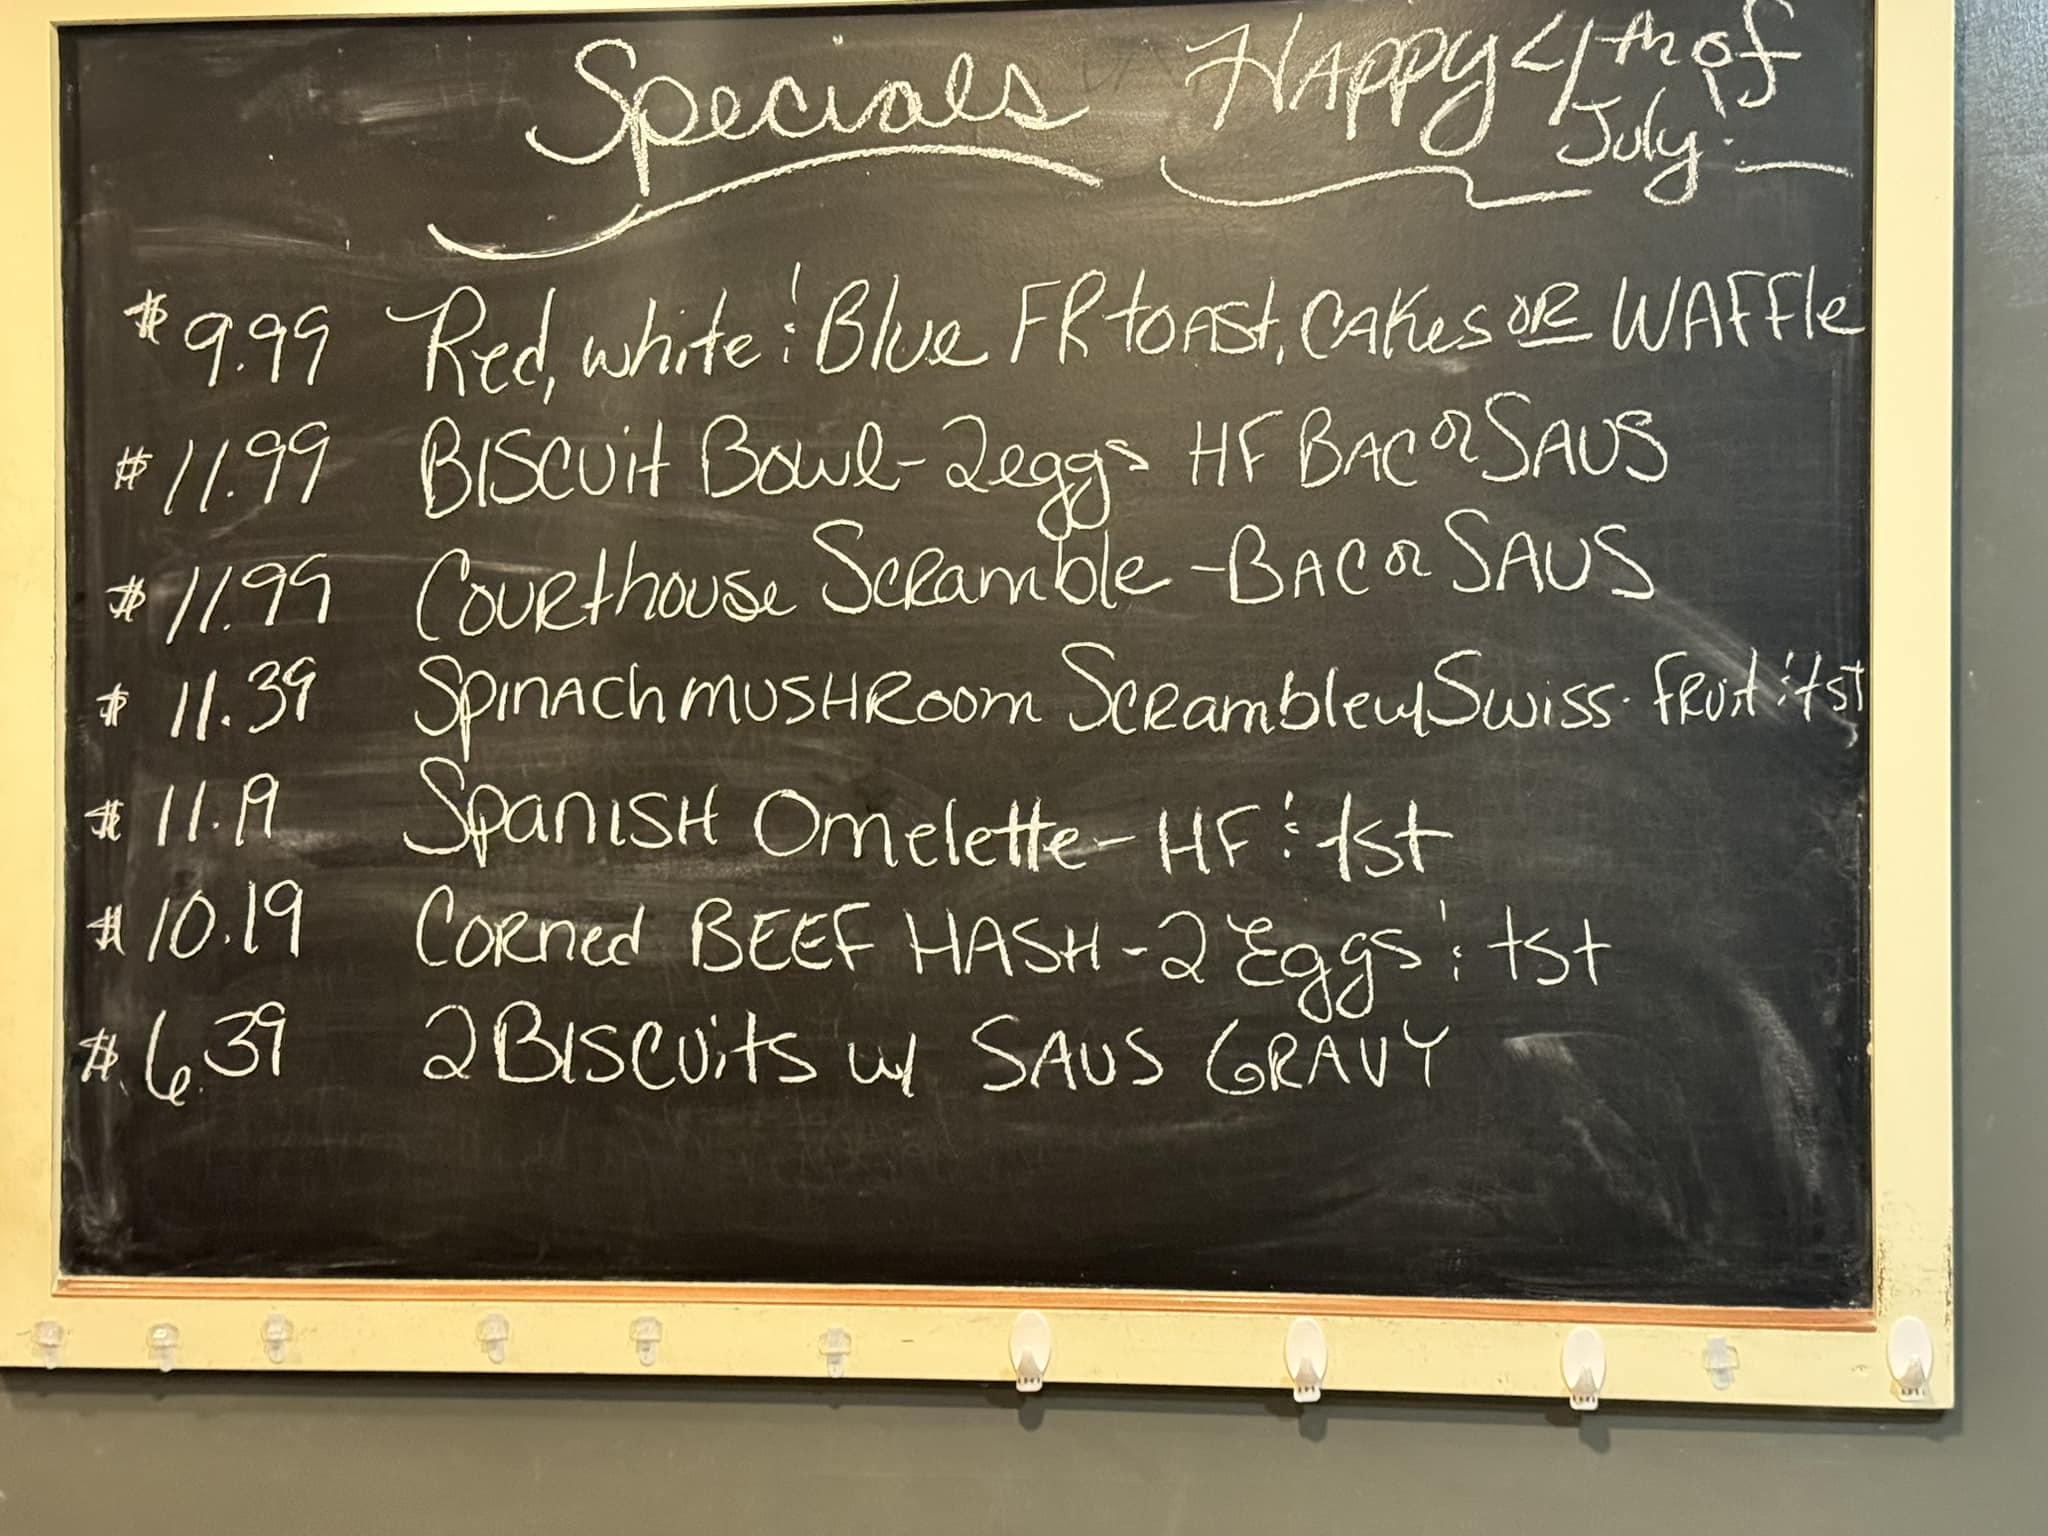 Specials
Happy 4th of
July!
$9.99 Red, white & Blue FR toast, cakes or waffle
$11.99 Biscuit Bowl - 2 eggs HF Bac or Saus
$11.99 Courthouse Scramble - Bac or Saus
$11.39 Spinach mushroom Scramble w/ Swiss. Fruit & tst
$11.19 Spanish Omelette - HF & tst
$10.19 Corned BEEF HASH - 2 Eggs & tst
$6.39 2 Biscuits w/ SAUS GRAVY